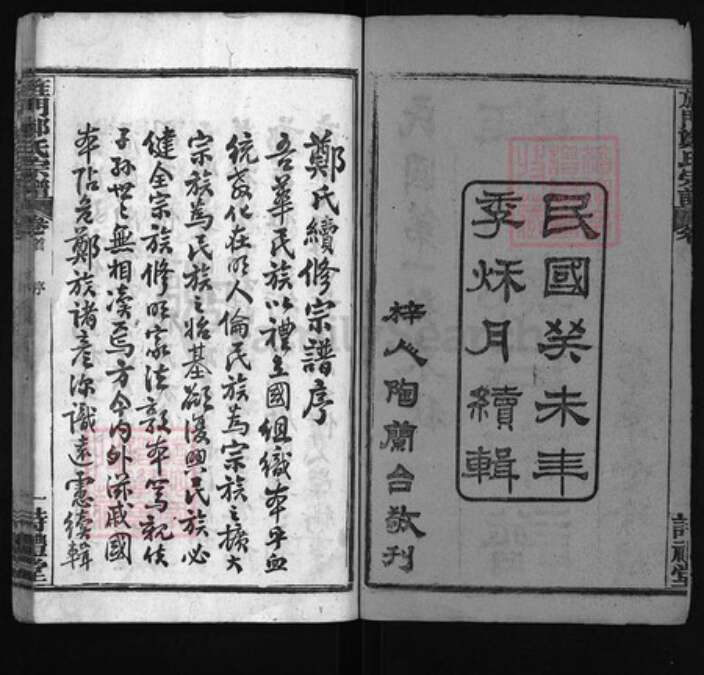 民國癸未年
季秌月續輯
梓人陶蘭台敬刊
詩禮堂
鄭氏續修宗譜序
吾華民族以禮立國組織本乎血
統教化在明人倫民族為宗族之擴大
宗族為民族之始基欲復興民族必
健全宗族修明家法敦本篤親俟
子孫世々無相凌焉方今內外滋戚國
本阽危鄭族諸彥深識遠慮續輯
鄭氏宗譜
卷首
序
一
詩禮堂